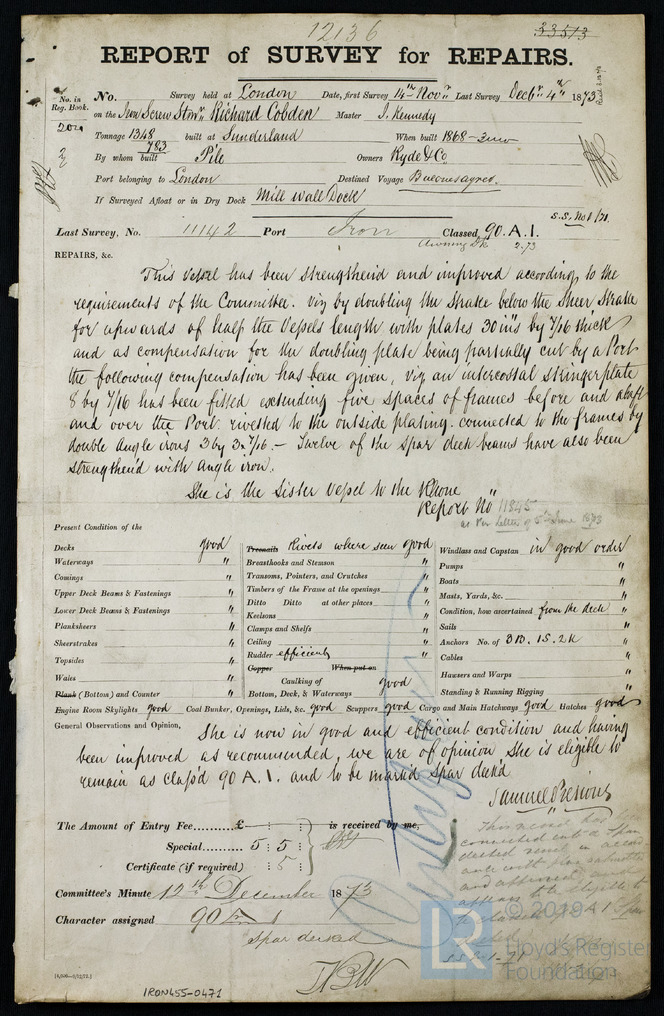 12136
33513
REPORT of SURVEY for REPAIRS.
No. in Reg. Book.
No. Survey held at London Date, first Survey 14th Novr Last Survey Decbr 4th 1873
on the Iron Screw Stmr Richard Cobden Master J. Kennedy
Tonnage 1348 built at Sunderland When built 1868
783
By whom built Pile Owners Ryde & Co
Port belonging to London Destined Voyage
If Surveyed Afloat or in Dry Dock Mill wall Dock
S.S. No 1/71
Last Survey, No. 11142 Port Iron Classed, 90. A. 1.
Awning Dk 2.73
REPAIRS, &c.
This Vessel has been Strengthen'd and improved according to the
requirements of the Committee. Viz by doubling the Strake below the Sheer Strake
for upwards of half the Vessels length with plates 30 ins by 7/16 thick
and as compensation for the doubling plate being partially cut by a Port
the following compensation has been given, viz an intercostal stringer plate
8 by 7/16 has been fitted extending five spaces of frames before and abaft
and over the Port. rivetted to the outside plating. connected to the frames by
double angle irons 3 by 3. 7/16. – Twelve of the Spar deck beams have also been
Strengthen'd with angle iron.
She is the Sister Vessel to the Rhone
Report No 11845
as per Letter of 5th June 1873
Present Condition of the
Decks good
Waterways "
Comings "
Upper Deck Beams & Fastenings "
Lower Deck Beams & Fastenings "
Planksheers "
Sheerstrakes "
Topsides "
Wales "
Plank (Bottom) and Counter "
Treenails Rivets where seen good
Breasthooks and Stemson "
Transoms, Pointers, and Crutches "
Timbers of the Frame at the openings "
Ditto Ditto at other places "
Keelsons "
Clamps and Shelfs "
Ceiling "
Rudder efficient "
Copper When put on
Caulking of
Bottom, Deck, & Waterways good
Windlass and Capstan in good order
Pumps "
Boats "
Masts, Yards, &c. "
Condition, how ascertained from the deck
Sails "
Anchors No. of 3B. 1S. 2K "
Cables "
Hawsers and Warps "
Standing & Running Rigging "
Engine Room Skylights good Coal Bunker, Openings, Lids, &c. good Scuppers good Cargo and Main Hatchways good Hatches good
General Observations and Opinion,
She is now in good and efficient condition and having
been improved as recommended, we are of opinion She is eligible to
remain as Class'd 90 A. 1. and to be mark'd Spar deck'd
Samuel Presious
The Amount of Entry Fee £ : : is received by me,
Special 5 : 5 :
Certificate (if required) : 5 :
Committee's Minute 12th December 1873
Character assigned 90 A 1
Spar decked
This vessel has been
converted into a Spar
decked vessel in accord-
ance with plan submitted
and approved, and
appears to be eligible to
© 2019
Lloyd's Register
Foundation
LR
IRON455-0471